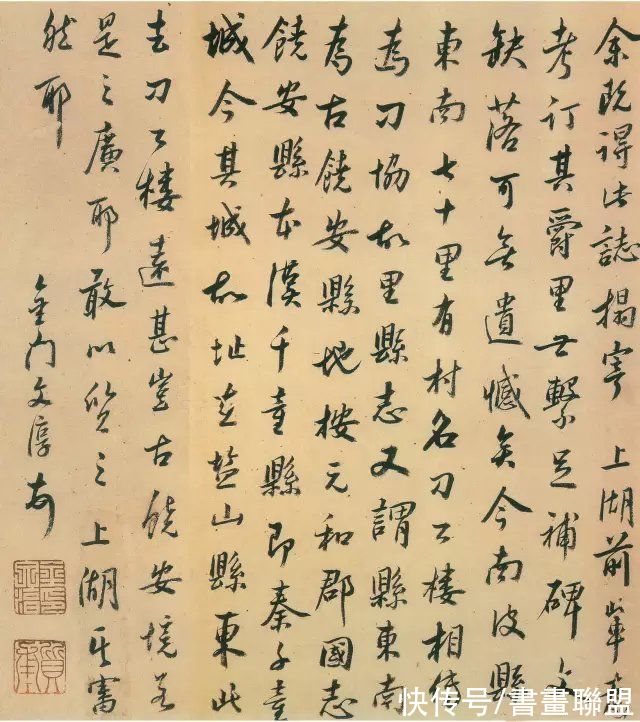 余既得此誌搨寄 上湖前輩
考訂其爵里世繫足補碑文
缺落可無遺憾矣今南皮縣
東南七十里有村名刀公樓相傳
為刀協故里縣志又謂縣東南
為古饒安縣地按元和郡國志
饒安縣本漢千童縣即秦千童
城今其城故址在盐山縣東此
去刀公樓遠甚豈古饒安境若
是之廣耶敢以質之上湖其審
然耶
金门文淳
快传号/書畫聯盟